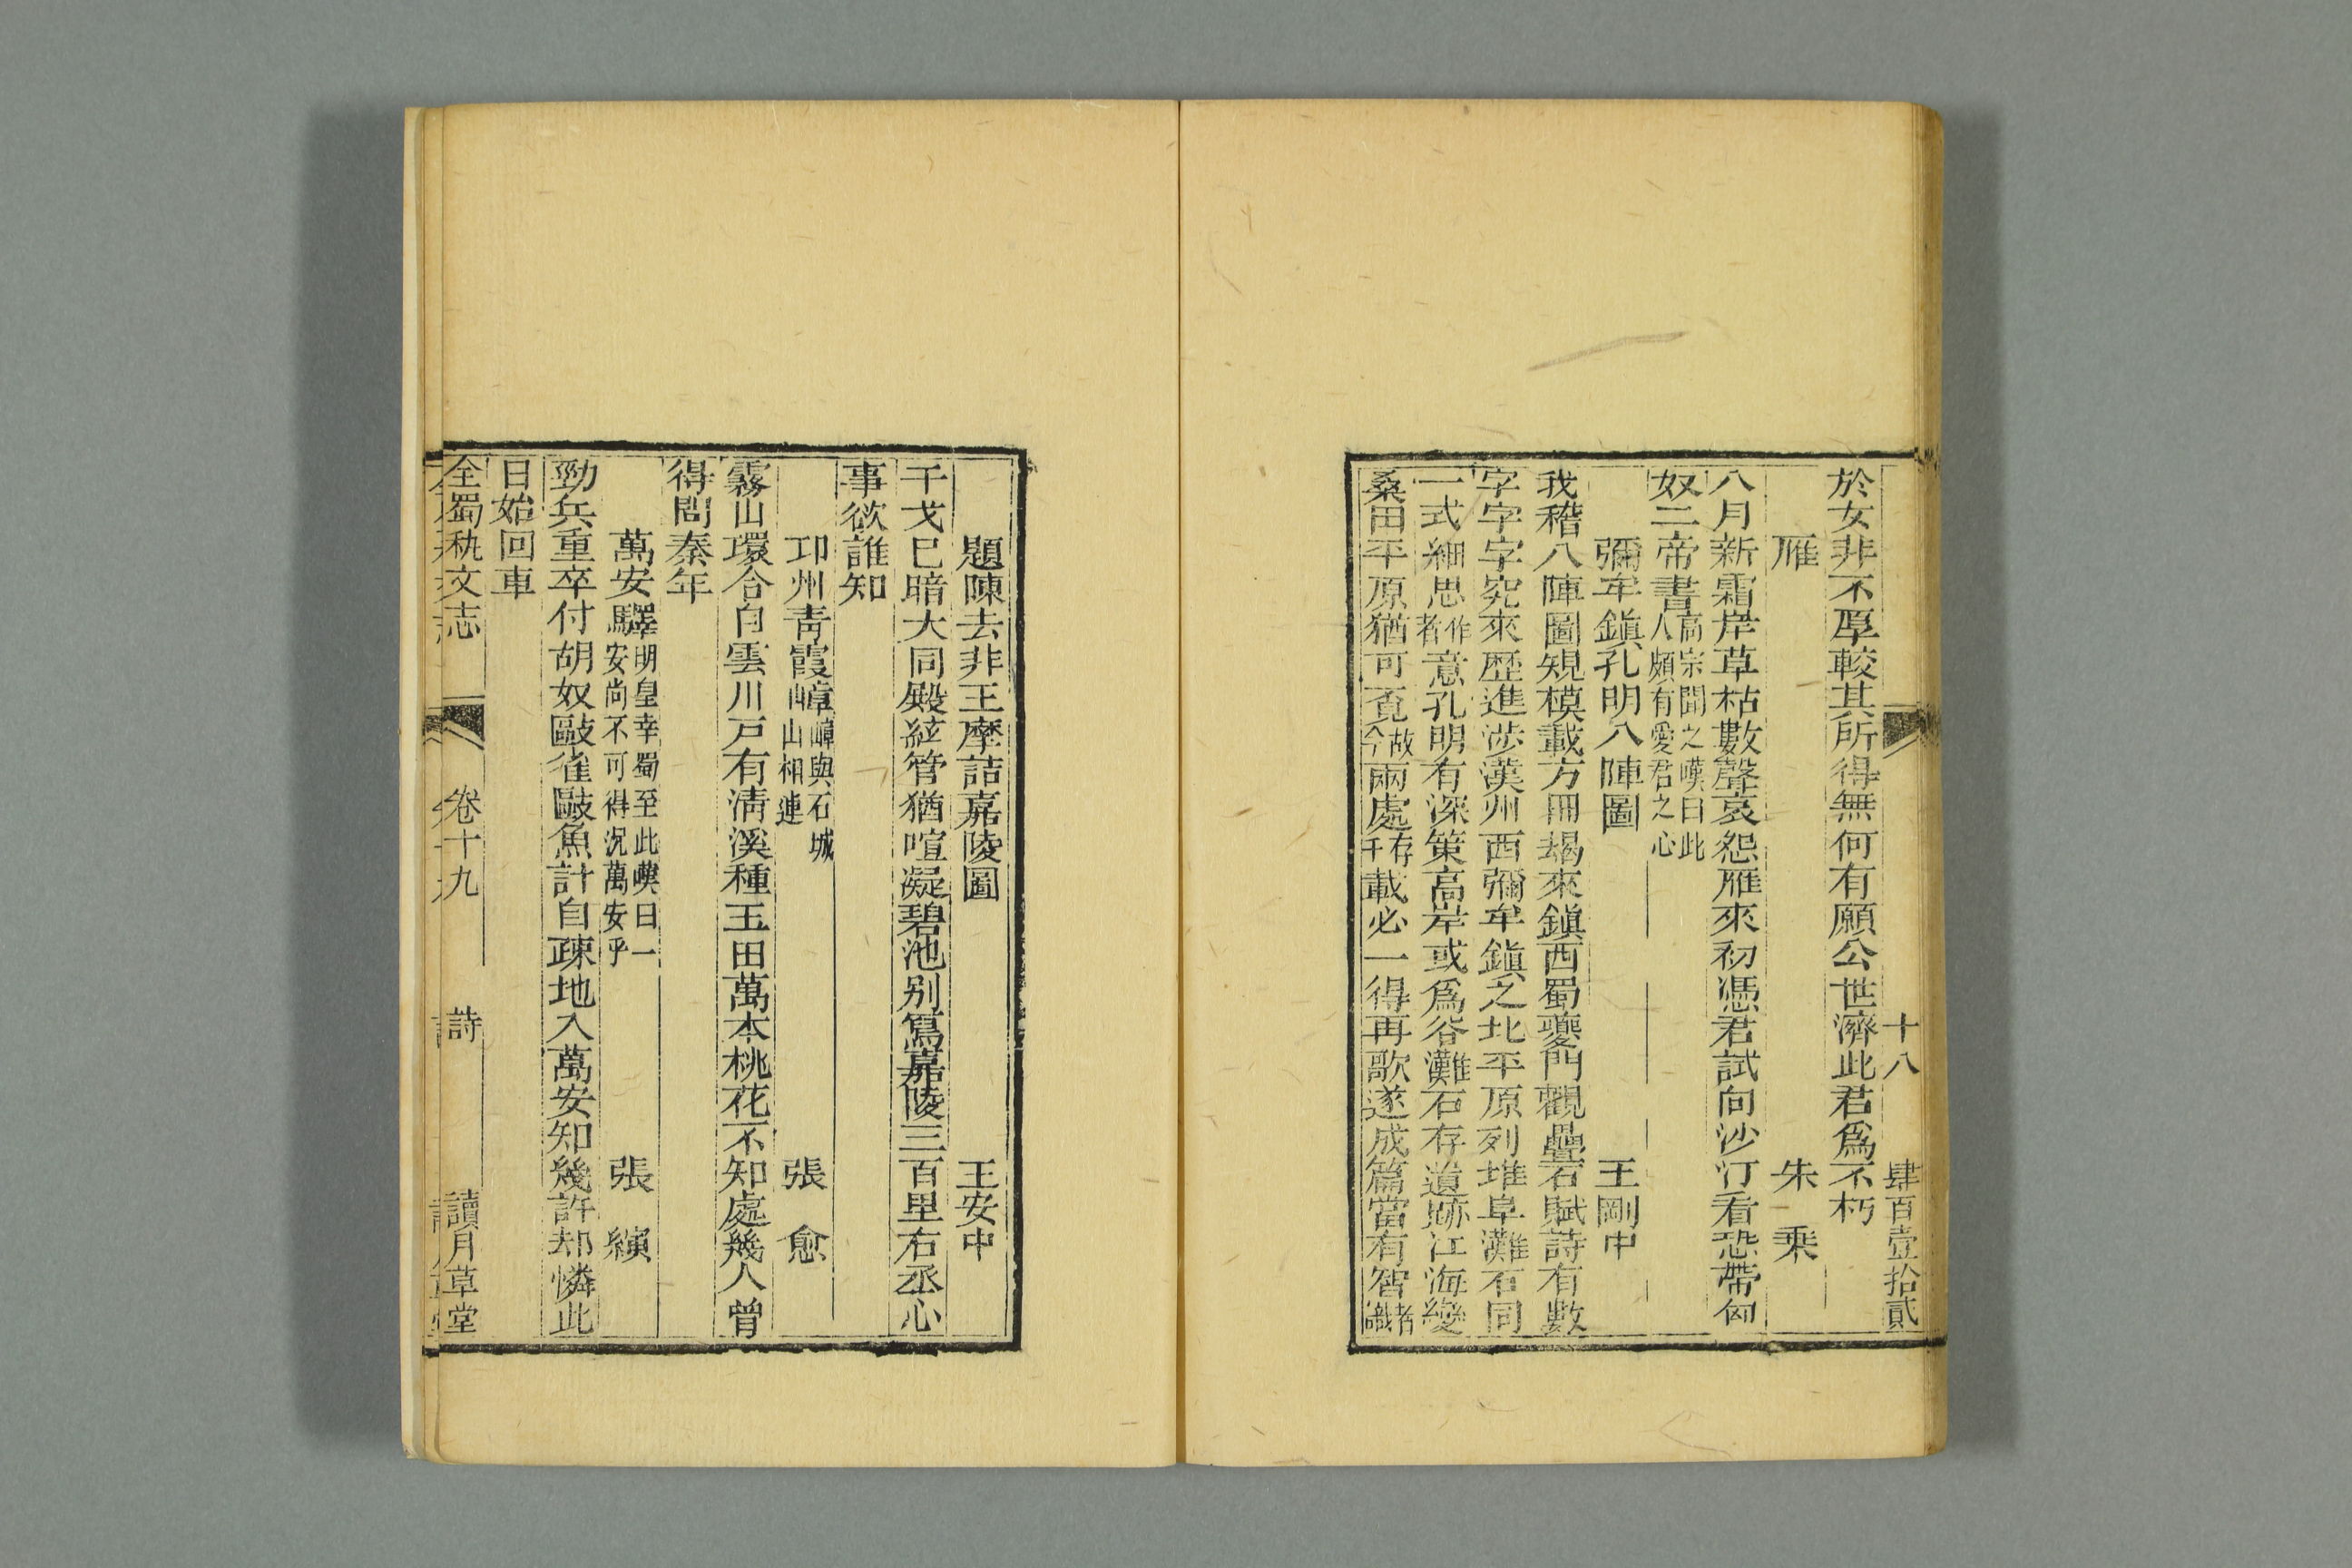 十八　肆百壹拾貳
於女非不厚較其所得無何有願公世濟此君爲不朽
雁　朱乘
八月新霜岸草枯數聲哀怨雁來初憑君試向沙汀看恐帶匈
奴二帝書高宗聞之嘆曰此人頗有愛君之心
彌牟鎮孔明八陣圖　王剛中
我稽八陣圖規模載方冊朅來鎮西蜀夔門觀疊石賦詩有數
字字字究來歷進涉漢州西彌牟鎮之北平原列堆阜灘石同
一式細思作者意孔明有深策高岸或爲谷灘石存遺跡江海變
桑田平原猶可覓故今兩處存千載必一得再歌遂成篇當有智者識
題陳去非王摩詰嘉陵圖　王安中
干戈已暗大同殿絃管猶喧凝碧池別寫嘉陵三百里右丞心
事欲誰知
邛州青霞嶂嶂與石城山相連　張愈
霧山環合白雲川戸有清溪種玉田萬本桃花不知處幾人曾
得問秦年
萬安驛明皇幸蜀至此嘆曰一安尚不可得況萬安乎　張縯
勁兵重卒付胡奴敺雀敺魚計自疎地入萬安知幾許却憐此
日始回車
全蜀秇文志　卷十九　詩　讀月草堂